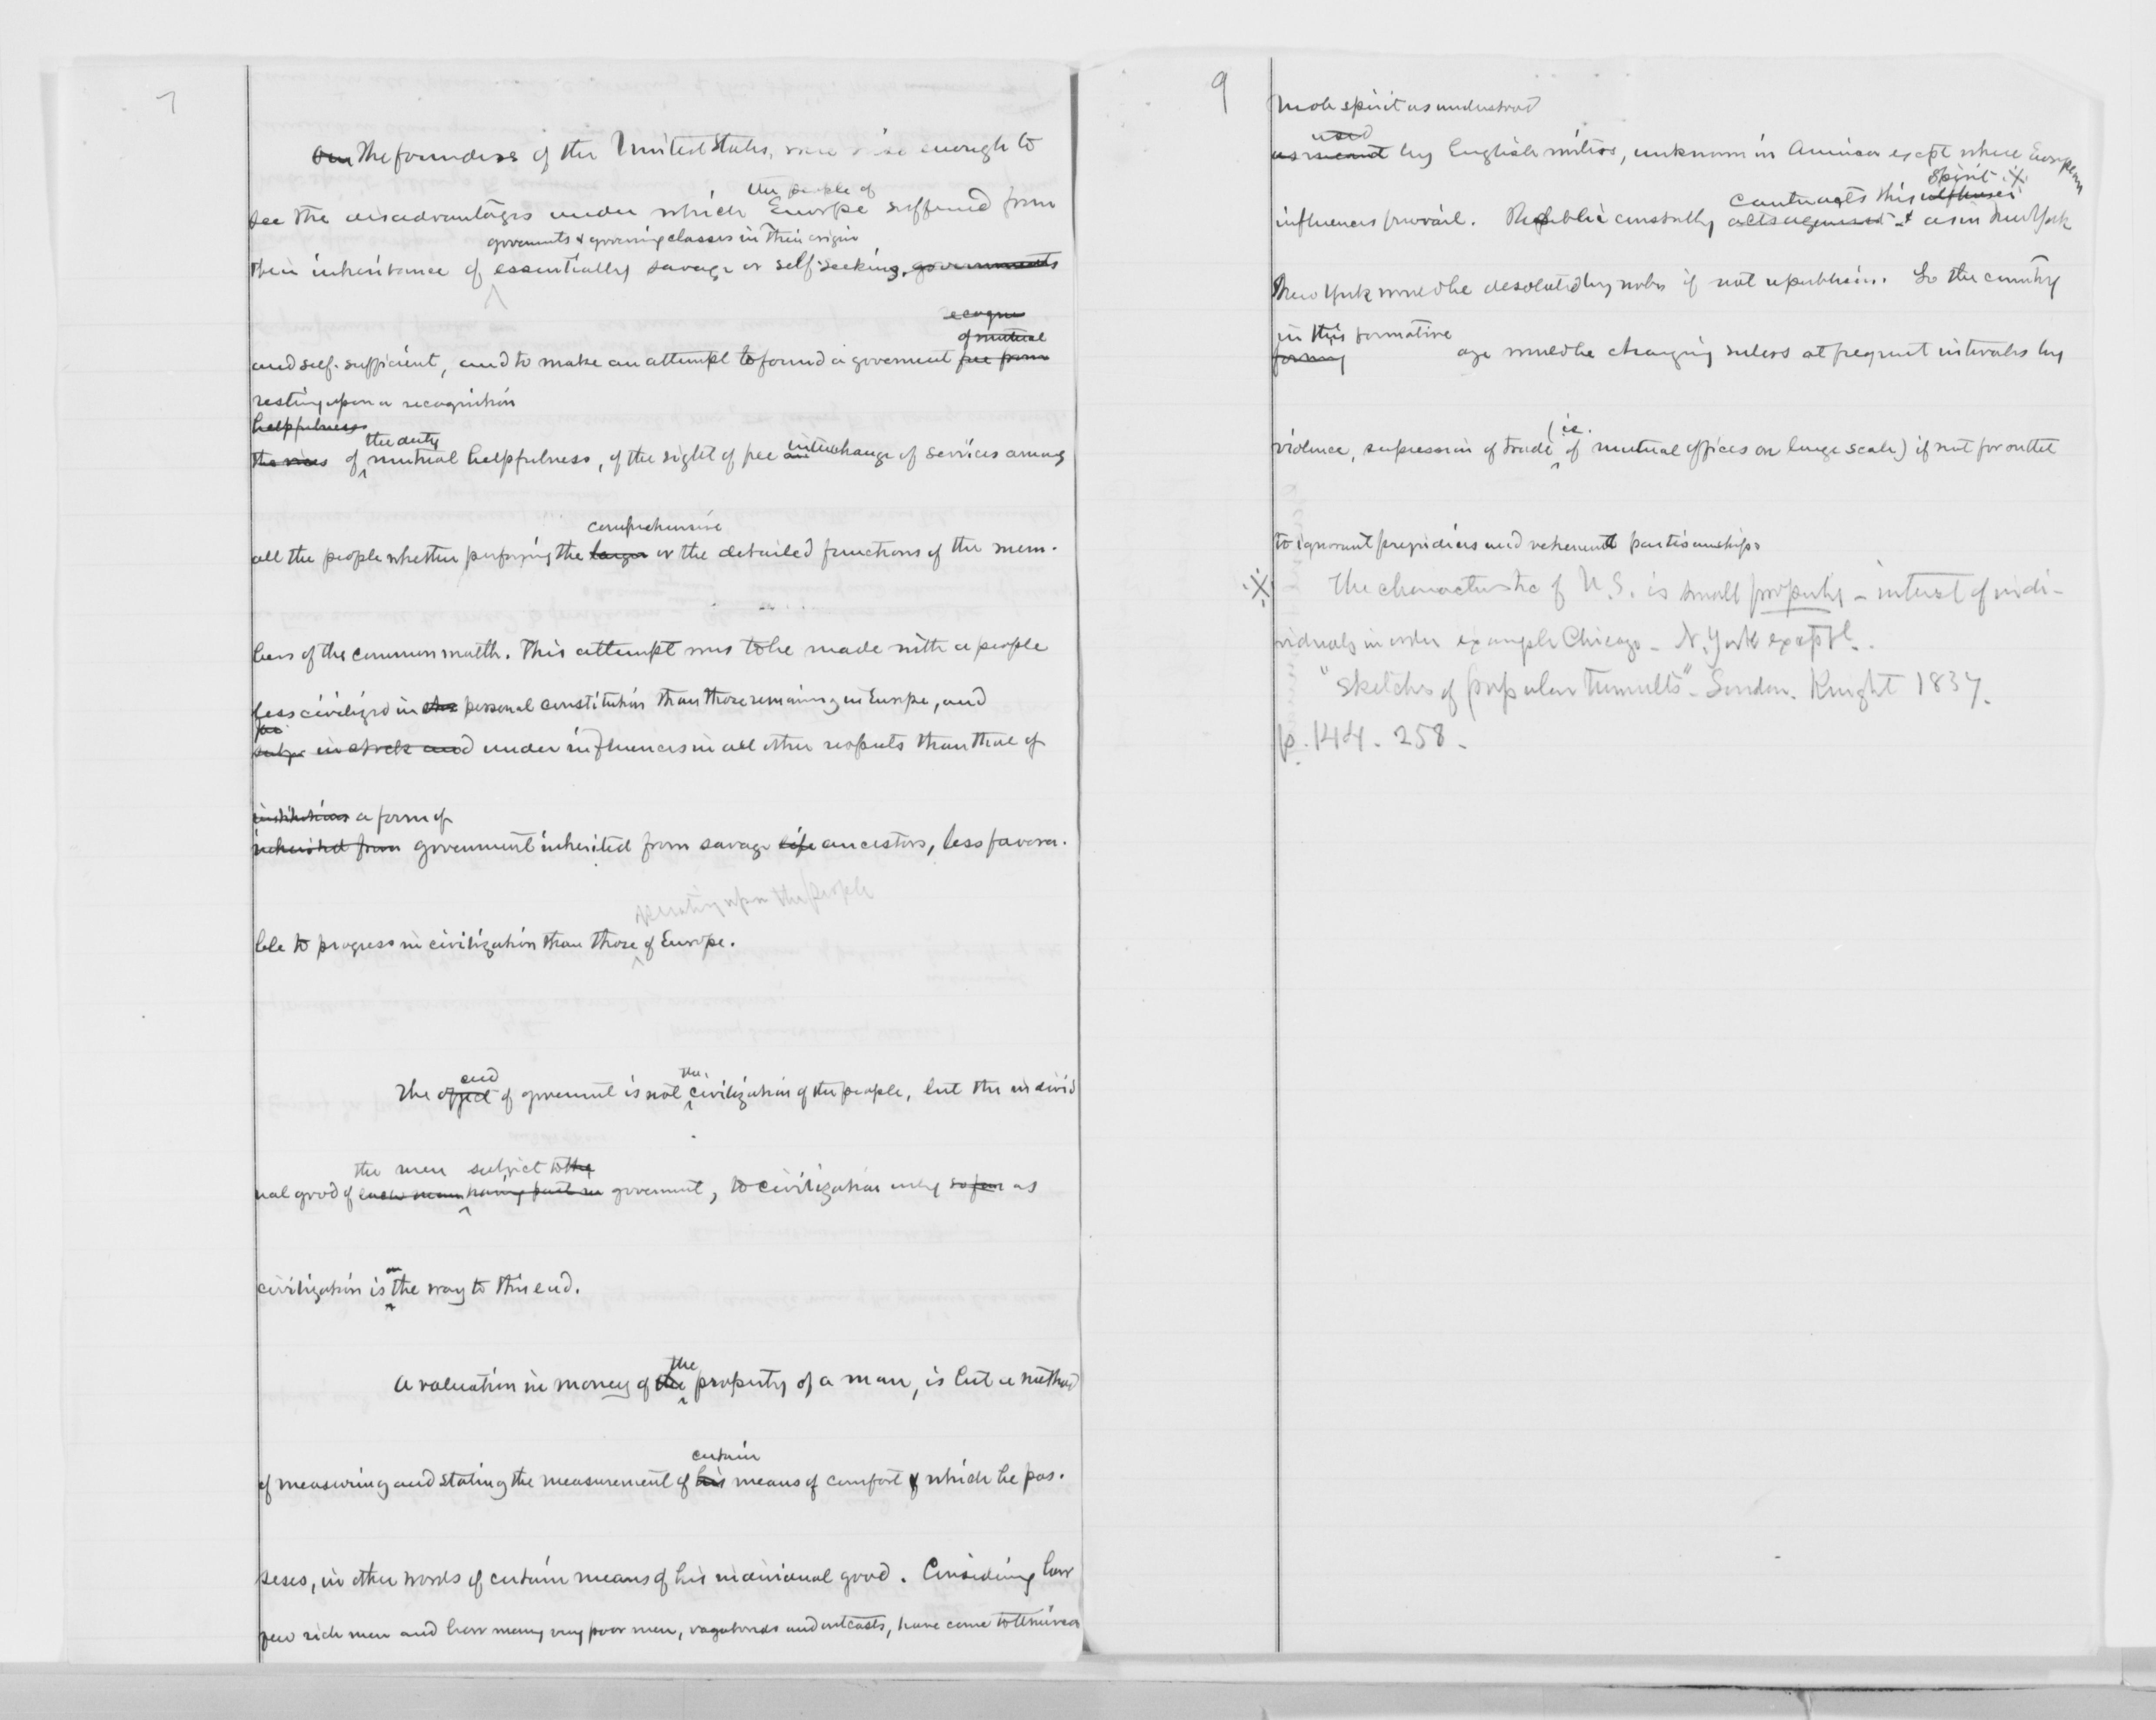 7
Our The founders of the United States, were wise enough to
the people of
see the disadvantages under which Europe suffered from
goverments & governing classes in their origin
their inheritance of essentially savage or self-seeking, governments
recogni
of mutual
and self-sufficient, and to make an attempt to found a goverment free from
resting upon a recognition
helpfulness
the duty
of mutual helpfulness, of the right of free an interchange of services among
comprehensive
all the people whether performing the larger or the detailed functions of the mem-
bers of the commonwealth. This attempt was to be made with a people
less civilized in personal constitution than those remaining in Europe, and
in stock and under influences in all other respects than that of
institutions a form of
inherited from government inherited from savage life ancestors, less favora-
operating upon the people
ble to progress in civilization than those of Europe.
end
The object of goverment is not the civilization of the people, but the individ
the men subject to the
ual good of each man having part in goverment, to civilization only so far as
civilization is on the way to this end.
the
A valuation in money of the property of a man, is but a method
certain
of measuring and stating the measurement of his means of comfort of which he pos-
seses, in other words of certain means of his individual good. Considering how
few rich men and how many very poor men, vagabonds and outcasts, have come to
9
Mob spirit as understood
used
as meant by English writers, unknown in America except where European
contracts this spirit
influences prevail. Republic constantly acts against & as in New York
New York would be desolated by mobs if not republican. So the country
in this formative
forming age would be changing rulers at frequent intervals by
violence, supression of trade (i.e. of mutual offices on large scale) if not for outlet
to ignorant prejudices and vehement partisanships
The characteristic of U.S. is small property - interest of indi-
viduals in order example Chicago - N. York exceptl.
"Sketches of popular tumults" - London. Knight 1837.
p. 144. 258.